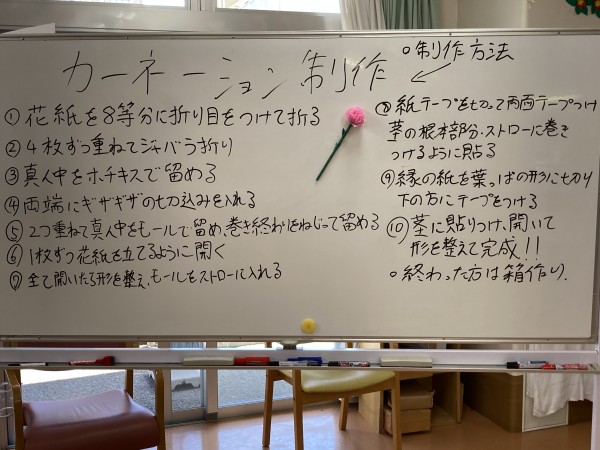 カーネーション制作
○制作方法
①花紙を8等分に折り目をつけて折る
②4枚ずつ重ねてジャバラ折り
③真人中をホチキスで留める
④両端にギザギザの切込みを入れる
⑤2つ重ねて真人中をモールで留め、巻き終わりをねじって留める
⑥1枚ずつ花紙を立てるように開く
⑦全て開いたら形を整え、モールをストローに入れる
⑧紙テープを切って両面テープつけ
茎の根本部分、ストローに巻き
つけるように貼る
⑨縁の紙を葉っぱの形に切り
下の方にテープをつける
⑩茎に貼りつけ、開いて
形を整えて完成!!
○終わった方は箱作り.